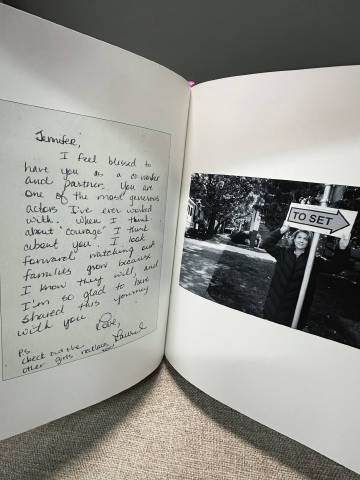 Jennifer,
I feel blessed to
have you as a co-worker
and partner. You are
one of the most generous
actors I've ever worked
with. When I think
about "courage" I think
about you. I look
forward watching our
families grow because
I know they will, and
I'm so glad to have
shared this journey
with you.
Love,
Laurel
P.S.
Check out the
other girls necklace
TO SET